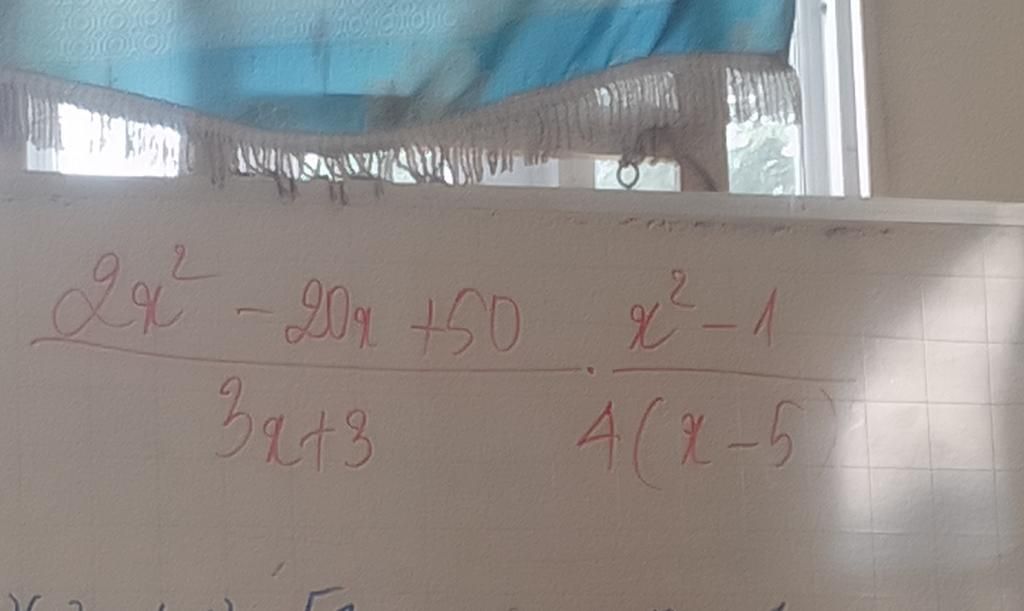 2x² - 20x + 50 / 3x + 3 · x² - 1 / 4(x - 5)